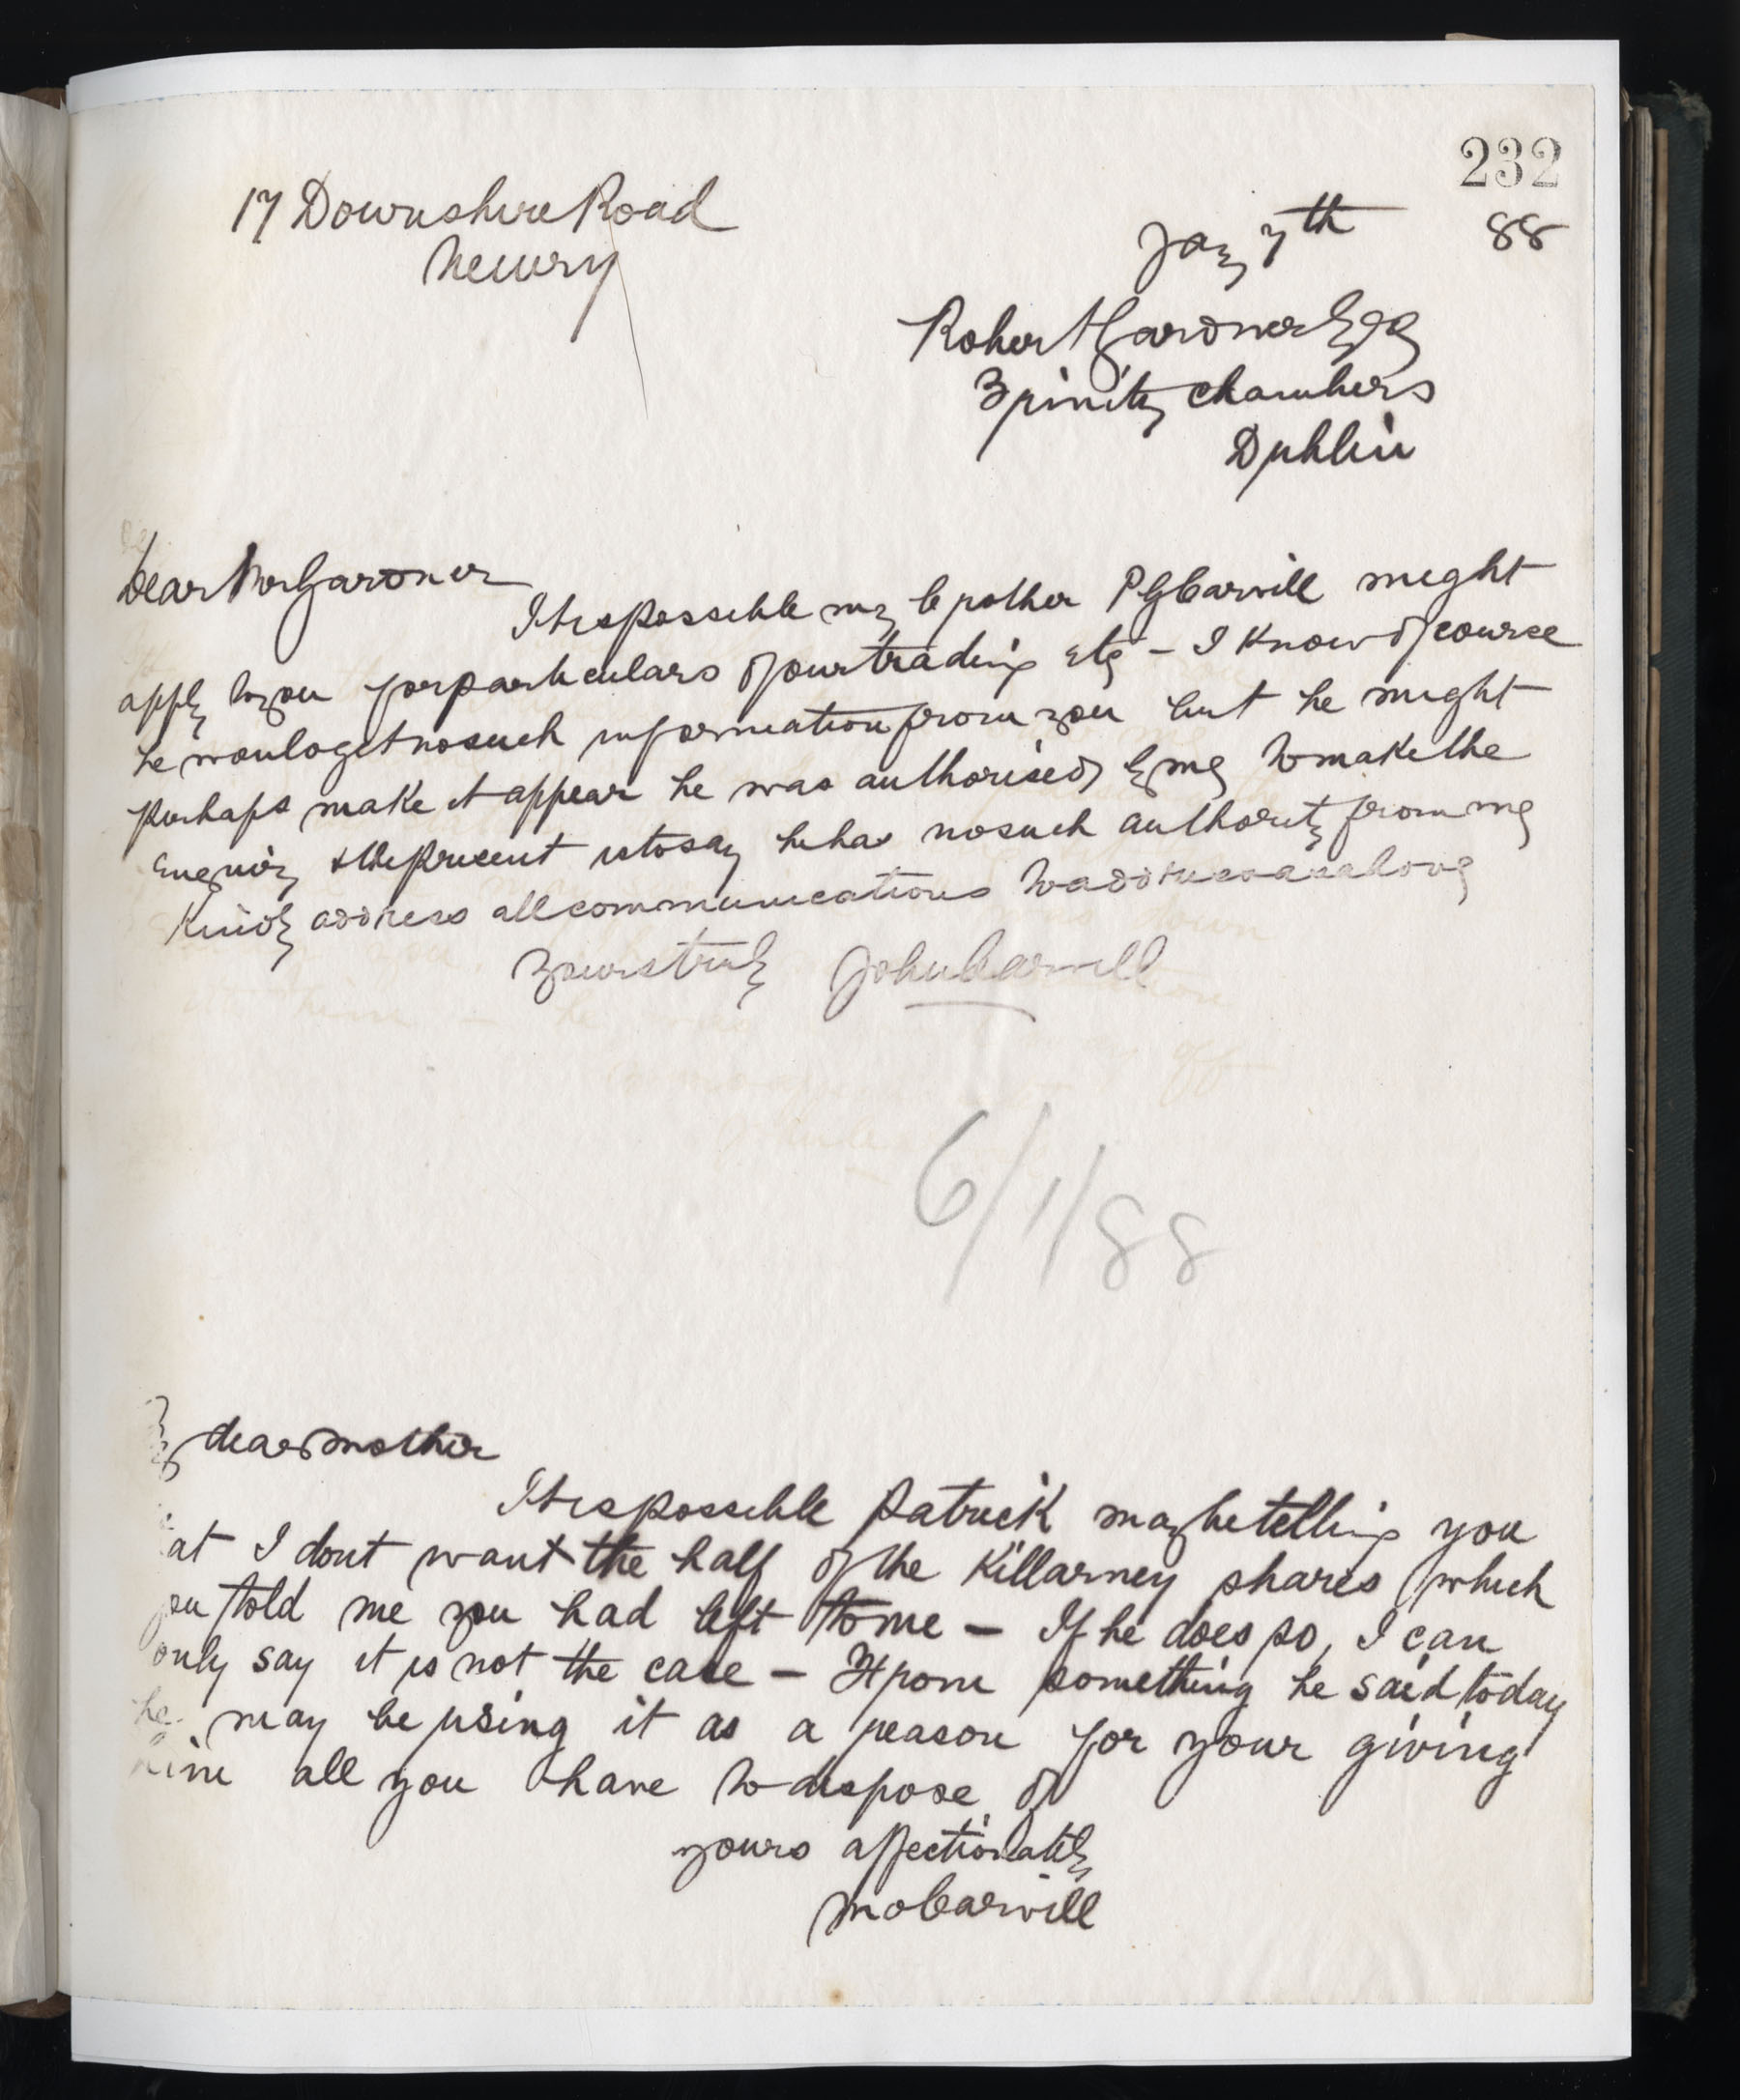 232
17 Downshire Road
Newry
Jany 7th 88
Robert Gardner Esq
Trinity Chambers
Dublin
Dear Mr Gardner
It is possible my brother P G Carvill might
apply to you for particulars of our trading etc - I know of course
he would get no such information from you but he might
perhaps make it appear he was authorised by me to make the
enquiry & the present is to say he has no such authority from me
Kindly address all communications to address as above
Yours truly John Carvill
6/1/88
My dear Mother
It is possible Patrick may be telling you
at I dont want the half of the Killarney shares which
you told me you had left to me - If he does so, I can
only say it is not the case - From something he said today
he may be using it as a reason for your giving
him all you have to dispose of
yours affectionately
Carvill